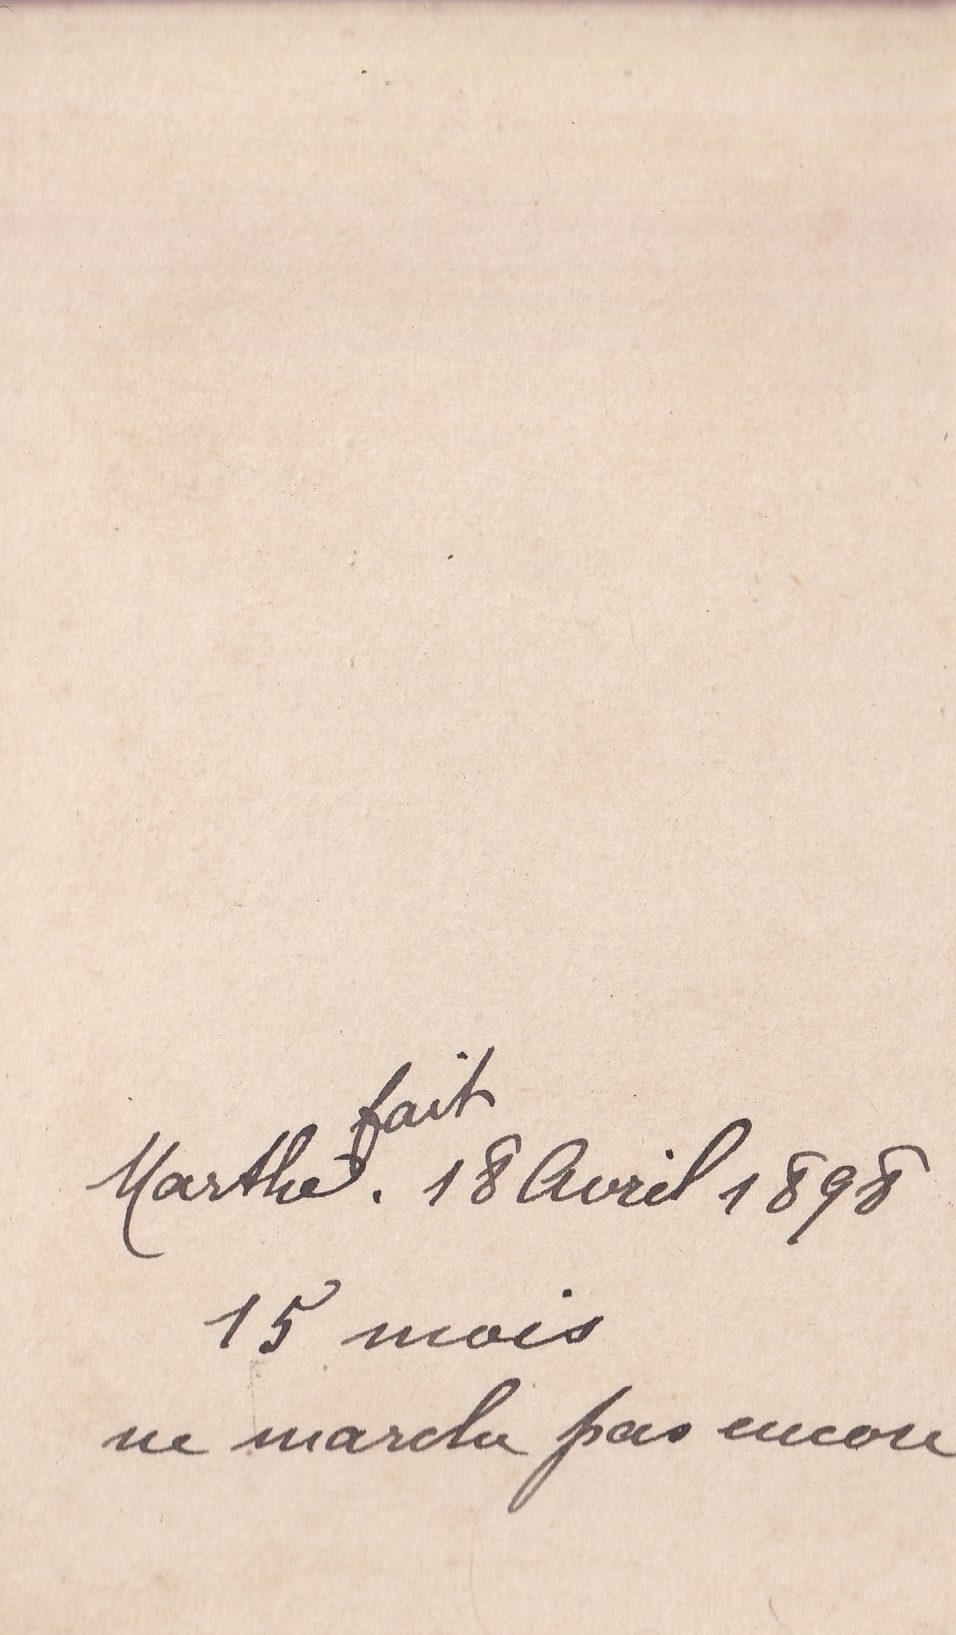 fait
Marthe. 18 Avril 1898
15 mois
ne marche pas encore